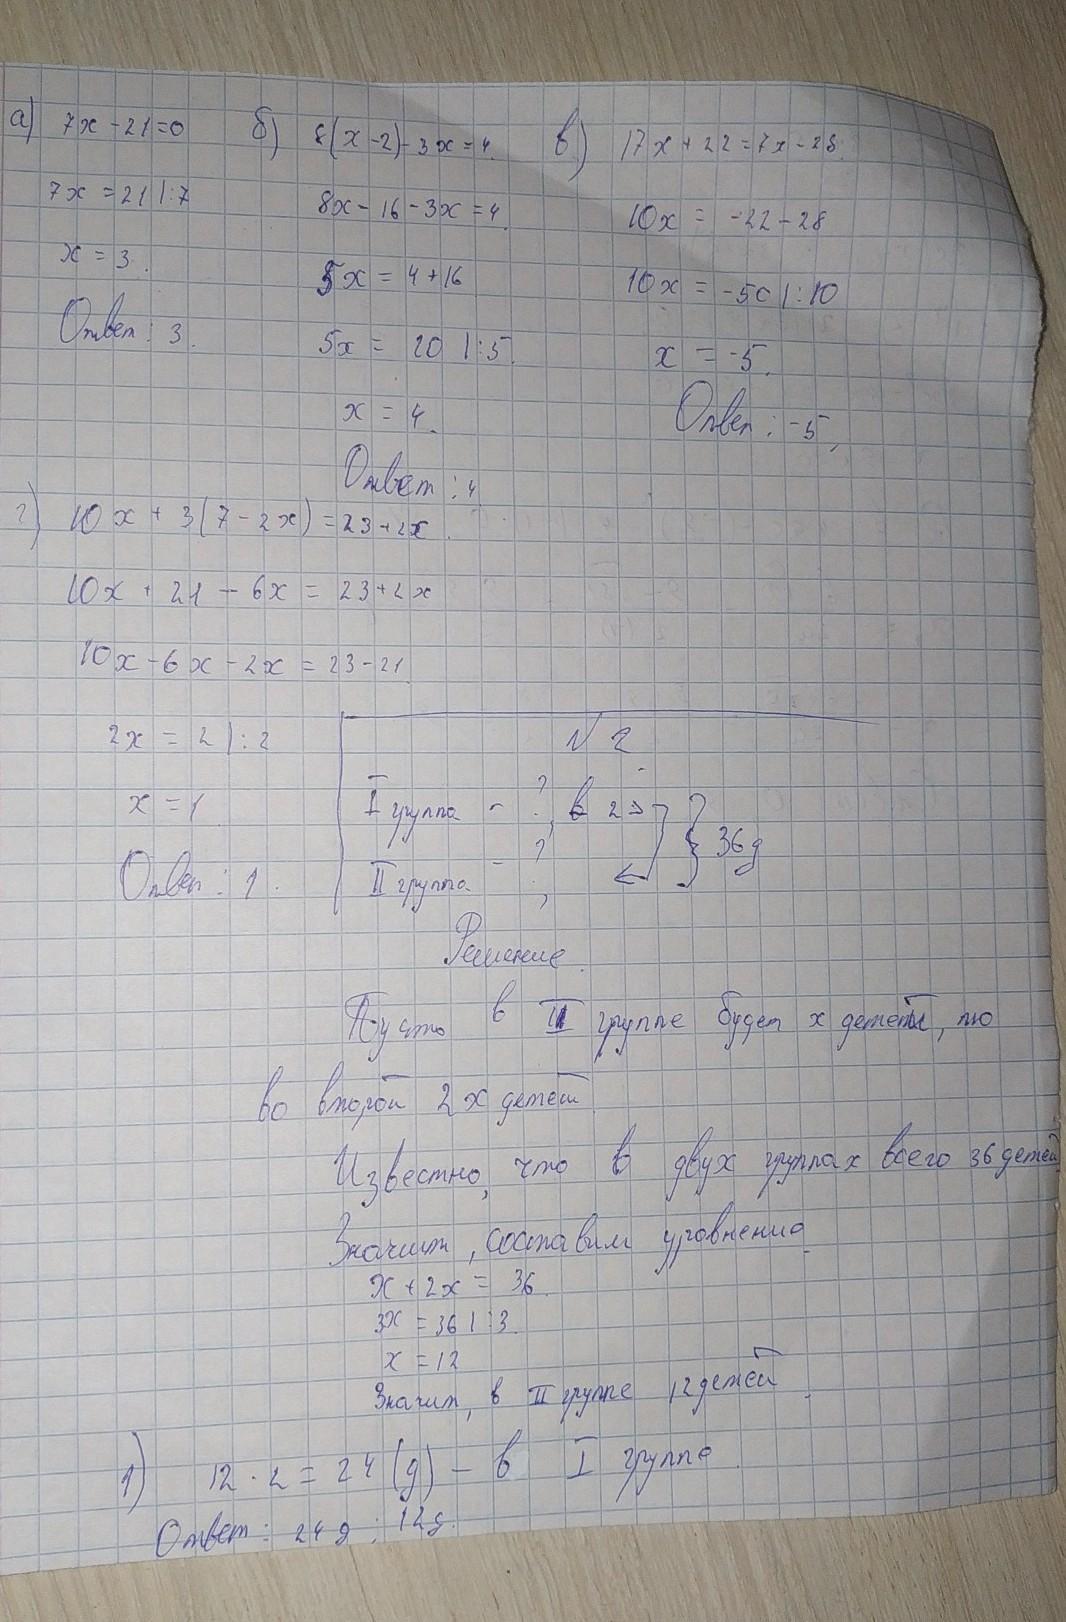 а) 7x - 21 = 0
7x = 21 |:7
x = 3.
Ответ: 3.
б) 8(x - 2) - 3x = 4.
8x - 16 - 3x = 4.
5x = 4 + 16
5x = 20 |:5.
x = 4.
Ответ: 4
в) 17x + 22 = 7x - 28.
10x = -22 - 28
10x = -50 |:10
x = -5.
Ответ: -5.
г) 10x + 3(7 - 2x) = 23 + 2x.
10x + 21 - 6x = 23 + 2x
10x - 6x - 2x = 23 - 21.
2x = 2 |:2
x = 1
Ответ: 1.
№ 2.
I группа - ?, в 2 } 36 д
II группа - ?,
Решение.
Пусть в II группе будет x детей, то
во второй 2x детей.
Известно, что в двух группах всего 36 детей
Значит, составим уровнение.
x + 2x = 36.
3x = 36 |:3.
x = 12
Значит, в II группе 12 детей.
1) 12 · 2 = 24 (д) - в I группе.
Ответ: 24 д ; 12 д.